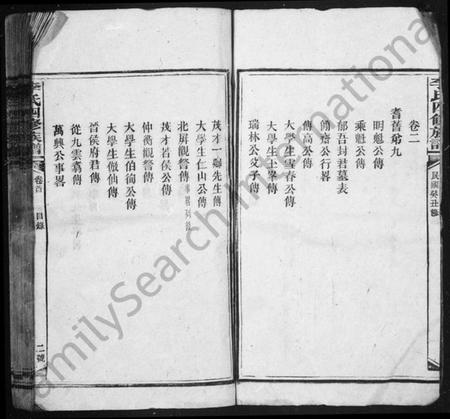 李氏四修族譜
民國癸丑
卷二
耆舊第九
明魁公傳
乘魁公傳
郁吾封君墓表
節齋公行畧
傳高公傳
大學生雪春公傳
大學生士畢傳
瑞林公父子傳
茂才一鶚先生傳
大學生仁山公傳
北屏觀督傳
茂才哲侯公傳
仲衡觀詧傳
大學生伯衡公傳
大學生傲仙傳
晉侯府君傳
從九雲翁傳
萬興公事畧
李氏四修族譜
卷首
目錄
二號
FamilySearch International